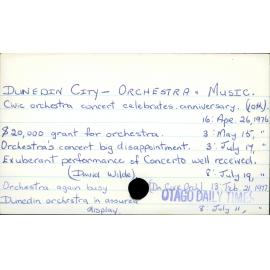 DUNEDIN CITY - ORCHESTRA & MUSIC.
Civic orchestra concert celebrates anniversary. (10th).
16: Apr. 26, 1976
$20,000 grant for orchestra. 3: May 15, "
Orchestra's concert big disappointment. 3: July 17, "
Exuberant performance of Concerto well received.
(David Wilde) 8: July 19, "
Orchestra again busy (Dn Civic Orch) 13: Feb 21, 1977
OTAGO DAILY TIMES
Dunedin orchestra in assured display 8: July 11, "